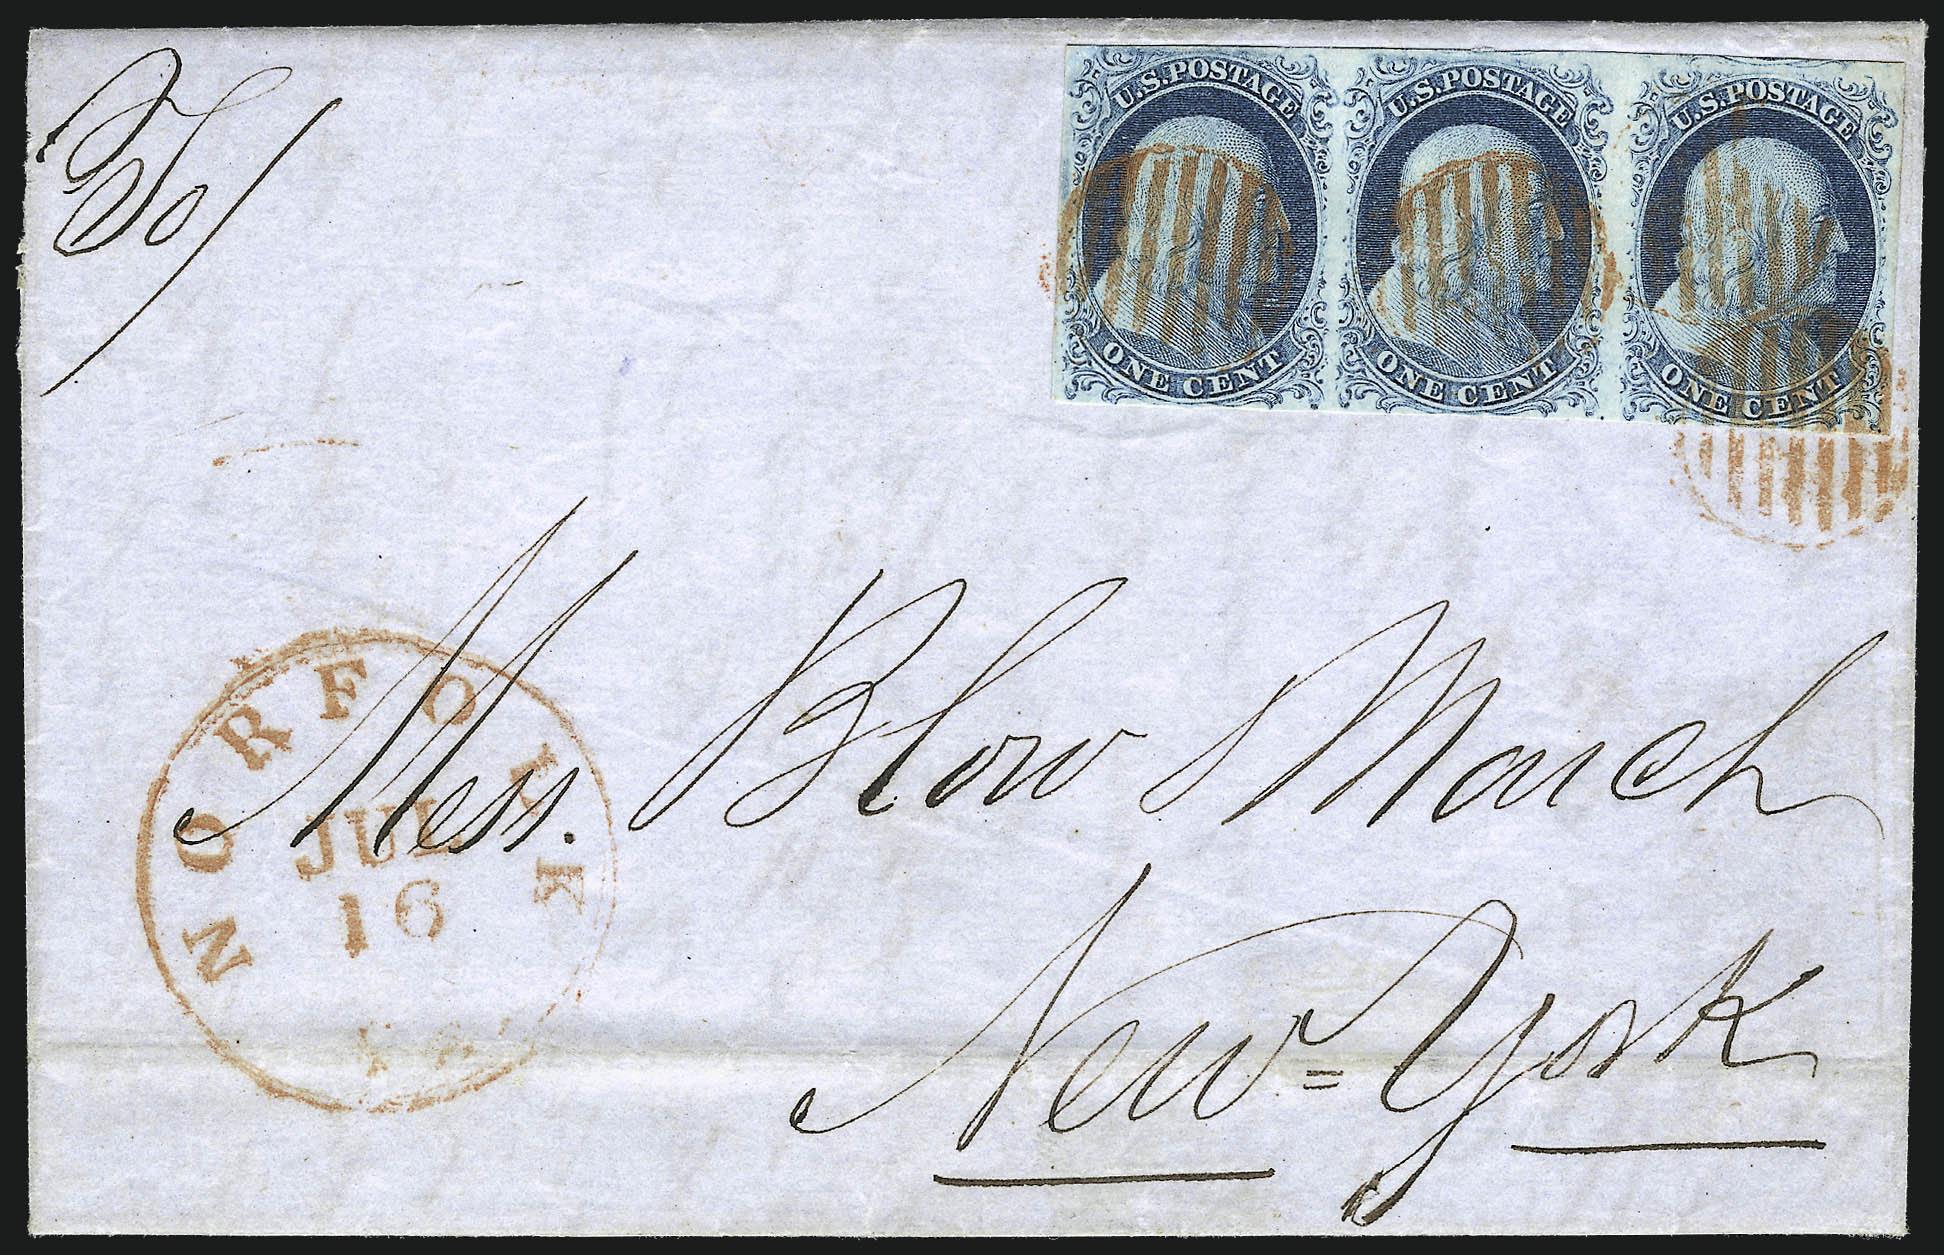 U.S. POSTAGE U.S. POSTAGE U.S. POSTAGE
ONE CENT ONE CENT ONE CENT
Mess. Blow & March
New=York
NORFOLK
JUL
16
VA.